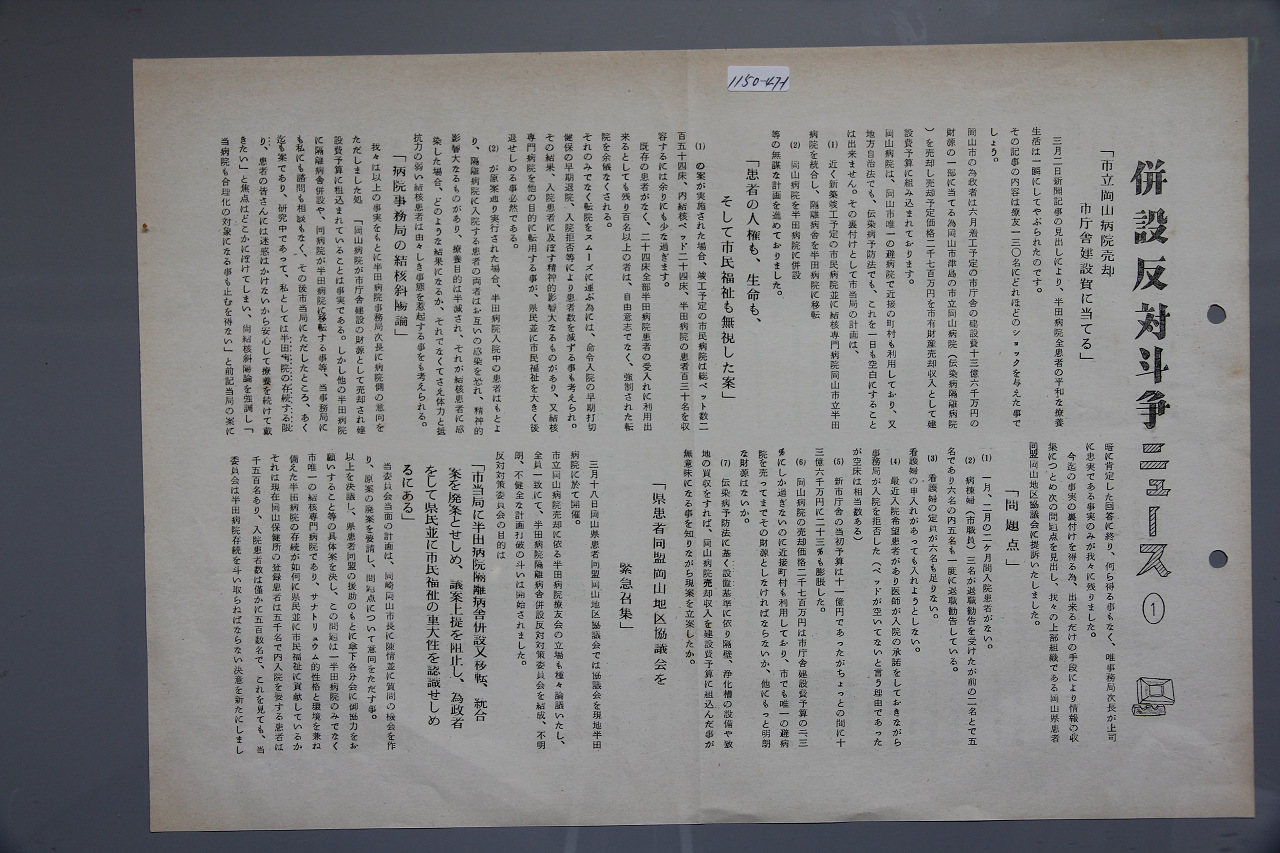 1150-47-1
併設反対斗争ニュース ①
「市立岡山病院売却
市庁舎建設資に当てる」
三月二日新聞記事の見出しにより、半田病院全患者の平和な療養
生活は一瞬にしてやぶられたのです。
その記事の内容は療友一三〇名にどれほどのショックを与えた事で
しょう。
岡山市の為政者は六月着工予定の市庁舎の建設費十三億六千万円の
財源の一部に当てる為岡山市津島の市立岡山病院（伝染病隔離病院
）を売却し売却予定価格二千七百万円を市有財産売却収入として建
設費予算に組み込まれております。
岡山病院は、岡山市唯一の避病院で近接の町村も利用しており、又
地方自治法でも、伝染病予防法でも、これを一日も空白にすること
は出来ません。その裏付けとして市当局の計画は、
(1) 近く新築竣工予定の市民病院並に結核専門病院岡山市立半田
病院を統合し、隔離病舎を半田病院に移転
(2) 岡山病院を半田病院に併設
等の無謀な計画を進めておりました。
「患者の人権も、生命も、
そして市民福祉も無視した案」
(1) の案が実施された場合、竣工予定の市民病院は総ベット数二
百五十四床、内結核ベッド二十四床、半田病院の患者百三十名を収
容するには余りにも少な過ぎます。
既存の患者がなく、二十四床全部半田病院患者の受入れに利用出
来るとしても残り百名以上の者は、自由意志でなく、強制された転
院を余儀なくされる。
それのみでなく転院をスムーズに運ぶ為には、命令入院の早期打切
健保の早期退院、入院拒否等により患者数を減ずる事も考えられ。
その結果、入院患者に及ぼす精神的影響大なるものがあり、又結核
専門病院を他の目的に転用する事が、県民並に市民福祉を大きく後
退せしめる事必然である。
(2) が原案通り実行された場合、半田病院入院中の患者はもとよ
り、隔離病院に入院する患者の両者はお互いの感染を恐れ、精神的
影響大なるものがあり、療養目的は半減され、それが結核患者に感
染した場合、どのような結果になるか、それでなくてさえ体力と抵
抗力の弱い結核患者は由々しき事態を惹起する事をも考えられる。
「病院事務局の結核斜陽論」
我々は以上の事実をもとに半田病院事務局次長に病院側の意向を
ただしました処 「岡山病院が市庁舎建設の財源として売却され建
設費予算に組込まれていることは事実である。しかし他の半田病院
に隔離病舎併設や、同病院が半田病院に移転する事等、当事務局に
も私にも諮問も相談もなく、その後市当局にただしたところ、あく
迄も案であり、研究中であって、私としては半田病院の存続する限
り、患者の皆さんには迷惑はかけないから安心して療養を続けて戴
きたい」と焦点はどこかにぼけてしまい、尚結核斜陽論を強調し「
当病院も合理化の対象になる事も止むを得ない」と前記当局の案に
暗に肯定した回答に終り、何ら得る事もなく、唯事務局次長が上司
に忠実である事実のみが我々に残りました。
今迄の事実の裏付けを得る為、出来るだけの手段により情報の収
集につとめ次の問題点を見出し、我々の上部組織である岡山県患者
同盟岡山地区協議会に提訴いたしました。
「問題点」
(1) 一月、二月の二ケ月間入院患者がない。
(2) 病棟婦（市職員）三名が退職勧告を受けたが前の二名とで五
名であり六名の内五名も一度に退職勧告している。
(3) 看護婦の定員が六名も足りない。
看護婦の申入れがあっても入れようとしない。
(4) 最近入院希望患者があり医師が入院の承諾をしておきながら
事務局が入院を拒否した（ベッドが空いてないと言う理由であった
が空床は相当数ある）
(5) 新市庁舎の当初予算は十一億円であったがちょっとの間に十
三億六千万円に二十三%も膨脹した。
(6) 岡山病院の売却価格二千七百万円は市庁舎建設費予算の二、三
%にしか過ぎないのに近接町村も利用しており、市でも唯一の避病
院を売ってまでその財源としなければならないか、他にもっと明朗
な財源はないか。
(7) 伝染病予防法に基く設置基準に依り隔壁、浄化槽の設備や敷
地の買収をすれば、岡山病院売却収入を建設費予算に組込んだ事が
無意味になる事を知りながら現案を立案したか。
「県患者同盟岡山地区協議会を
緊急召集」
三月十八日岡山県患者同盟岡山地区協議会では協議会を現地半田
病院に於て開催。
市立岡山病院売却に依る半田病院療友会の立場も種々論議いたし、
全員一致にて、半田病院隔離病舎併設反対対策委員会を結成、不明
朗、不健全な計画打破の斗いは開始されました。
反対対策委員会の目的は
「市当局に半田病院隔離病舎併設又移転、統合
案を廃案とせしめ、議案上提を阻止し、為政者
をして県民並に市民福祉の重大性を認識せしめ
るにある」
当委員会当面の計画は 岡崎岡山市長に陳情並に質問の機会を作
り、原案の廃案を要請し、問題点について意向をただす事。
以上を決議し、県患者同盟の後助のもとに傘下各分会に御協力をお
願いすること等の具体案を決し、この問題は一半田病院のみでなく
市唯一の結核専門病院であり、サナトリュウム的性格と環境を兼ね
備えた半田病院の存続が如何に県民並に市民福祉に貢献しているか
それは現在岡山保健所の登録患者は五千名で内入院を要する患者は
千五百名あり、入院患者数は僅かに五百数名で、これを見ても、当
委員会は半田病院存続を斗い取らねばならない決意を新たにしまし